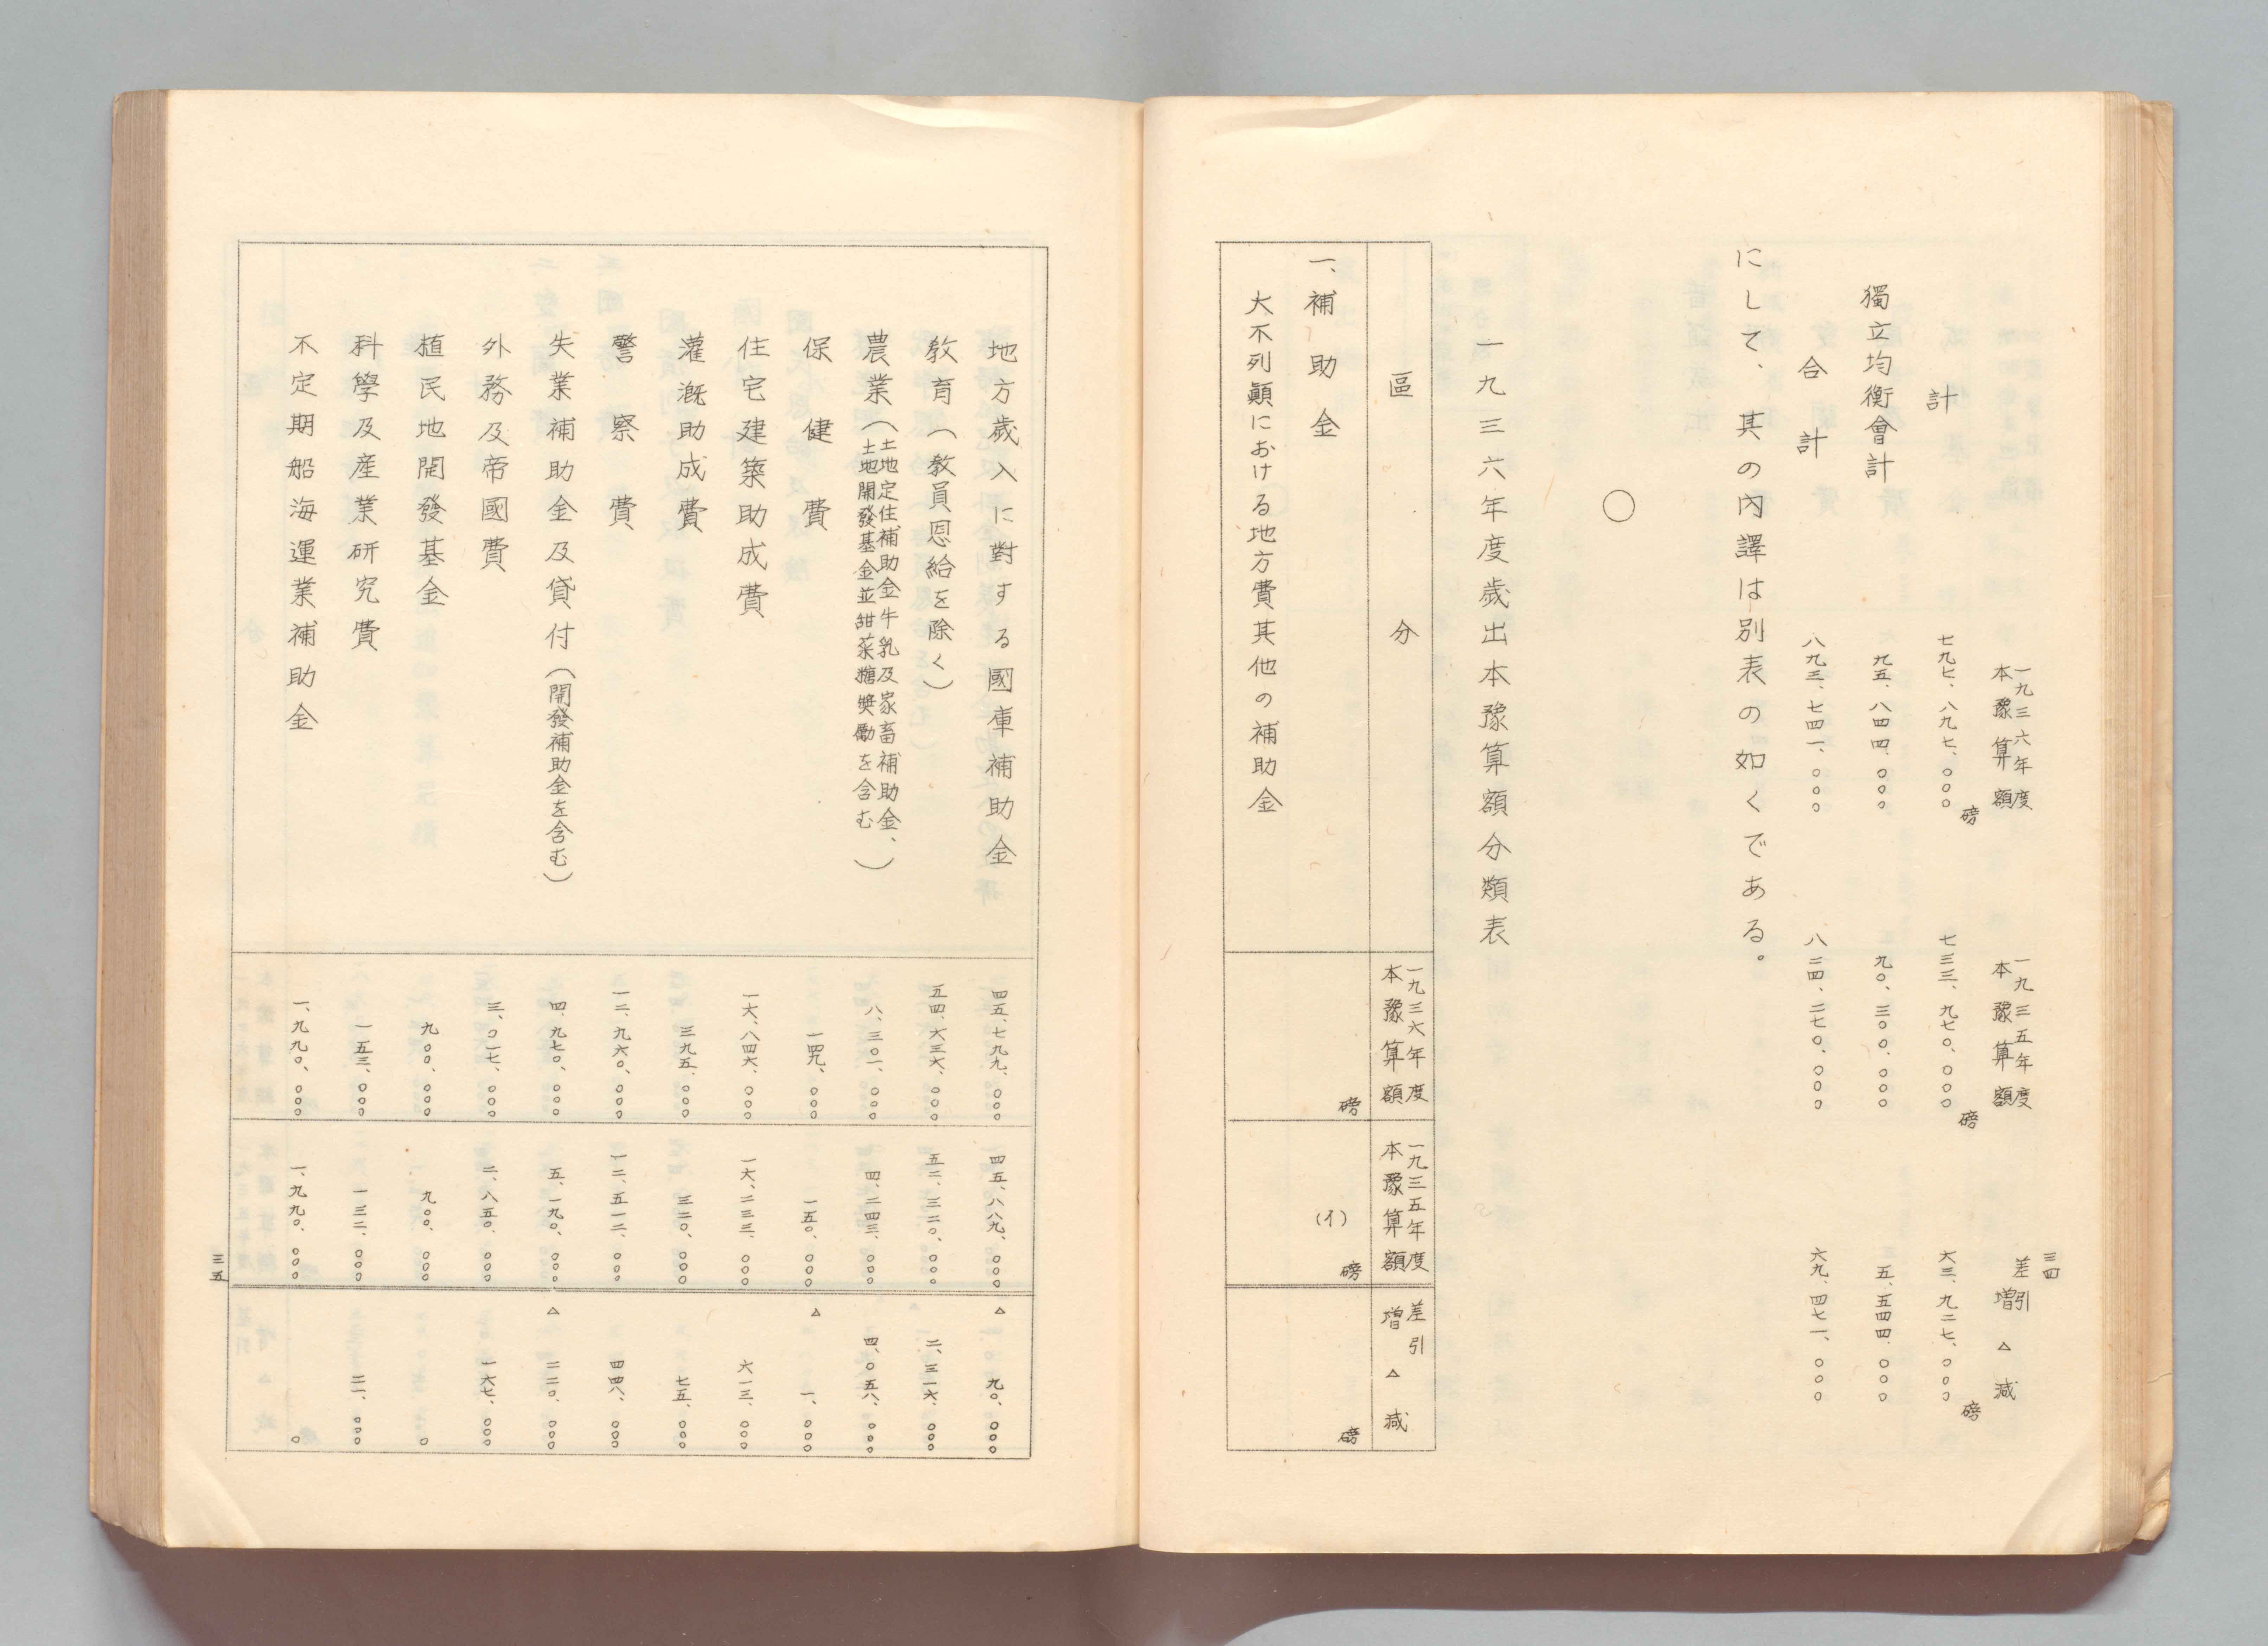 三四
一九三六年度本豫算額 一九三五年度本豫算額 差引増△減
計 七九七、八九七、〇〇〇磅 七三三、九七〇、〇〇〇磅 六三、九二七、〇〇〇磅
獨立均衡會計 九五、八四四、〇〇〇 九〇、三〇〇、〇〇〇 五、五四四、〇〇〇
合計 八九三、七四一、〇〇〇 八二四、二七〇、〇〇〇 六九、四七一、〇〇〇
にして、其の內譯は別表の如くである。
〇
一九三六年度歲出本豫算額分類表
區分 一九三六年度本豫算額 一九三五年度本豫算額 差引増△減
一、補助金 磅 (イ) 磅 磅
大不列顚における地方費其他の補助金
地方歲入に對する國庫補助金 四五、七九九、〇〇〇 四五、八八九、〇〇〇 △ 九〇、〇〇〇
敎育(敎員恩給を除く) 五四、六三六、〇〇〇 五二、三二〇、〇〇〇 二、三一六、〇〇〇
農業(土地定住補助金牛乳及家畜補助金、土地開發基金並甜菜糖奬勵を含む) 八、三〇一、〇〇〇 四、二四三、〇〇〇 四、〇五八、〇〇〇
保健費 一四九、〇〇〇 一五〇、〇〇〇 △ 一、〇〇〇
住宅建築助成費 一六、八四六、〇〇〇 一六、二三三、〇〇〇 六一三、〇〇〇
灌漑助成費 三九五、〇〇〇 三二〇、〇〇〇 七五、〇〇〇
警察費 一二、九六〇、〇〇〇 一二、五一二、〇〇〇 四四八、〇〇〇
失業補助金及貸付(開發補助金を含む) 四、九七〇、〇〇〇 五、一九〇、〇〇〇 △ 二二〇、〇〇〇
外務及帝國費 三、〇一七、〇〇〇 二、八五〇、〇〇〇 一六七、〇〇〇
植民地開發基金 九〇〇、〇〇〇 九〇〇、〇〇〇 〇
科學及産業研究費 一五三、〇〇〇 一三二、〇〇〇 二一、〇〇〇
不定期船海運業補助金 一、九九〇、〇〇〇 一、九九〇、〇〇〇 〇
三五